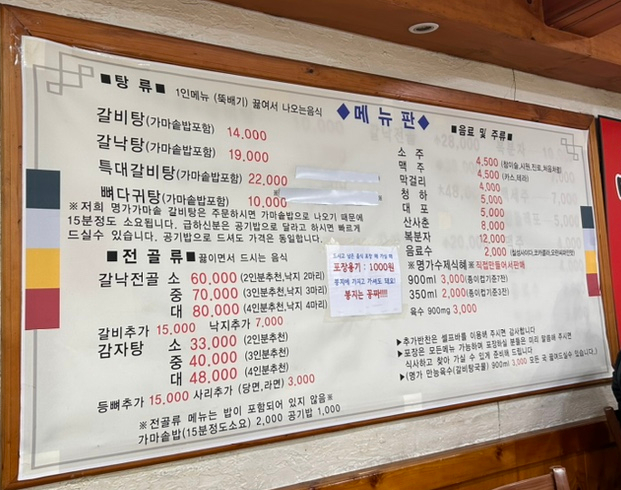 ◆메뉴판◆
■탕 류■ 1인메뉴 (뚝배기) 끓여서 나오는음식
갈비탕(가마솥밥포함) 14,000
갈낙탕(가마솥밥포함) 19,000
특대갈비탕(가마솥밥포함) 22,000
뼈다귀탕(가마솥밥포함) 10,000
※저희 명가가마솥 갈비탕은 주문하시면 가마솥밥으로 나오기 때문에
15분정도 소요됩니다. 급하신분은 공기밥으로 달라고 하시면 빠르게
드실수 있습니다. 공기밥으로 드셔도 가격은 동일합니다.
■전골류■ 끓이면서 드시는 음식
갈낙전골 소 60,000 (2인분추천,낙지 2마리)
중 70,000 (3인분추천,낙지 3마리)
대 80,000 (4인분추천,낙지 4마리)
갈비추가 15,000 낙지추가 7,000
감자탕 소 33,000 (2인분추천)
중 40,000 (3인분추천)
대 48,000 (4인분추천)
등뼈추가 15,000 사리추가 (당면,라면) 3,000
※전골류 메뉴는 밥이 포함되어 있지 않음※
가마솥밥(15분정도소요) 2,000 공기밥 1,000
포장용기 : 1000원
봉지에 가지고 가셔도 돼요!
봉지는 공짜!!!!
■음료 및 주류■
소 주 4,500 (참이슬,시원,진로,처음처럼)
맥 주 4,500 (카스,테라)
막걸리 4,000
청 하 5,000
대 포 5,000
산사춘 8,000
복분자 12,000
음료수 2,000 (칠성사이다,코카콜라,오란씨파인)
※명가수제식혜※직접만들어서판매
900ml 3,000 (종이컵기준7잔)
350ml 2,000 (종이컵기준3잔)
육수 900mg 3,000
▶추가반찬은 셀프바를 이용해 주시면 감사합니다
▶포장은 모든메뉴 가능하며 포장하실 분들은 미리 말씀해 주시면
식사하고 찾아 가실 수 있게 준비해 드립니다
▶(명가 만능육수(갈비탕국물) 900ml 3,000 모든 국 끓여드실수 있습니다.)